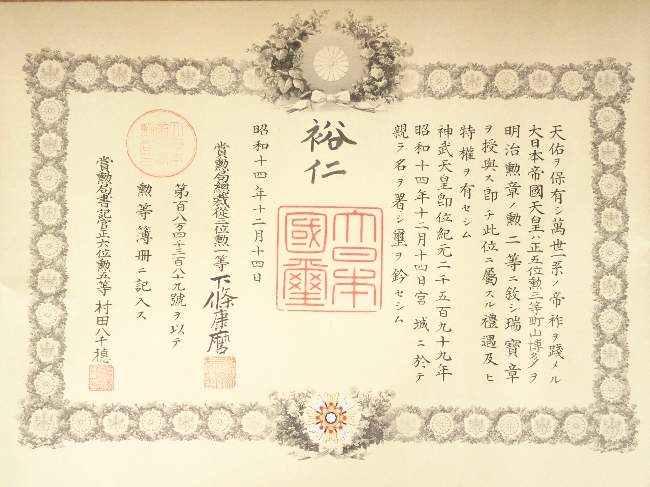 天佑ヲ保有シ萬世一系ノ帝祚ヲ踐メル
大日本帝國天皇ハ正五位勲三等町山博多ヲ
明治勲章ノ勲二等ニ敘シ瑞寶章
ヲ授與ス即チ此位ニ屬スル禮遇及ヒ
特權ヲ有セシム
神武天皇即位紀元二千五百九十九年
昭和十四年十二月十四日宮城ニ於テ
親ラ名ヲ署シ璽ヲ鈐セシム
裕仁
大日本
國璽
昭和十四年十二月十四日
賞勲局總裁從三位勲一等 下條康麿
第百八万四千三百八十九號ヲ以テ
勲等簿冊ニ記入ス
賞勲局書記官正六位勲五等 村田八千穂